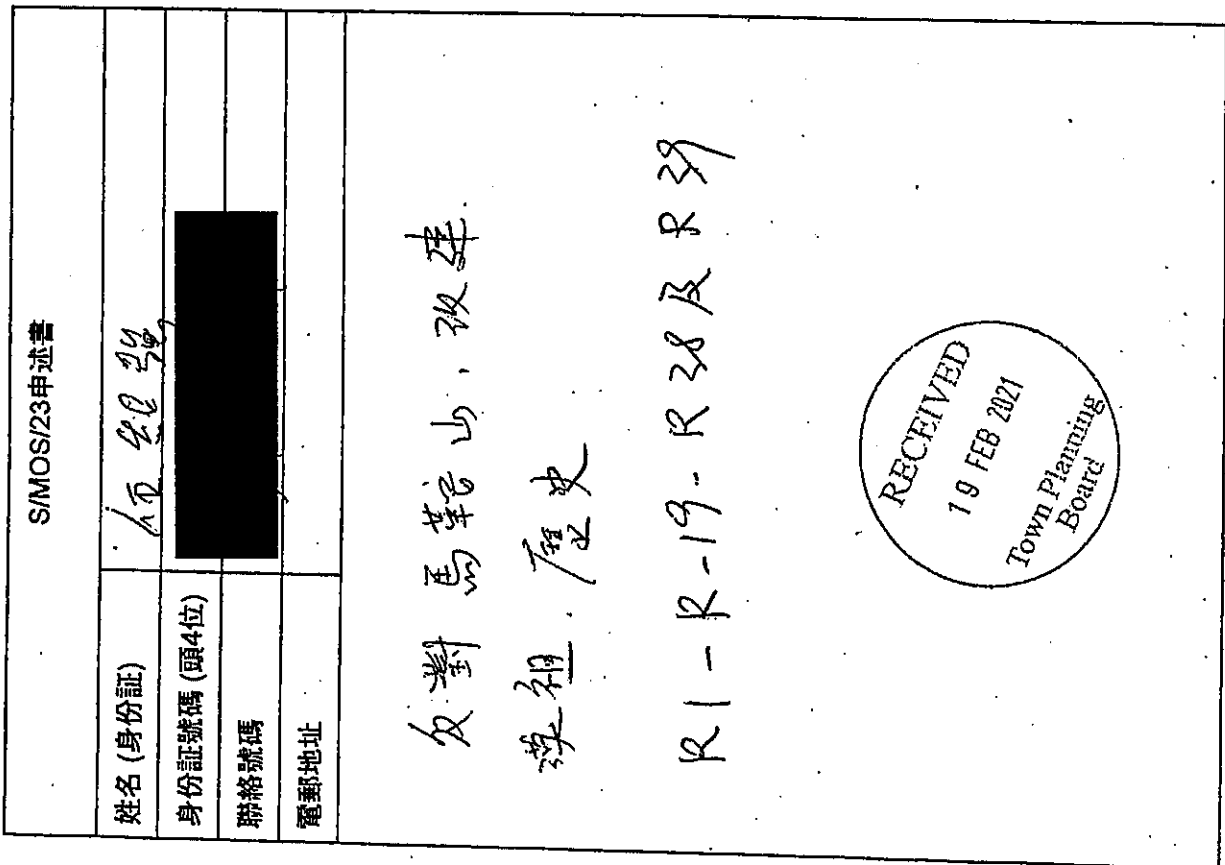 S/MOS/23申述書
姓名 (身份証)
身份証號碼 (頭4位)
聯絡號碼
電郵地址
反對 馬鞍山, 改建.
歷史
R1 - R-19 - R 38 及 R 39
RECEIVED
19 FEB 2021
Town Planning
Board